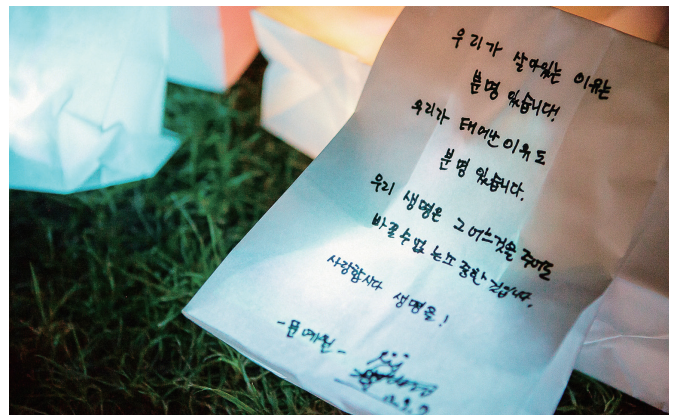 우리가 살아있는 이유는
분명 있습니다!
우리가 태어난 이유도
분명 있습니다.
우리 생명은 그 어느것을 주어도
바꿀수 없는 소중한 것입니다.
사랑합시다 생명을!